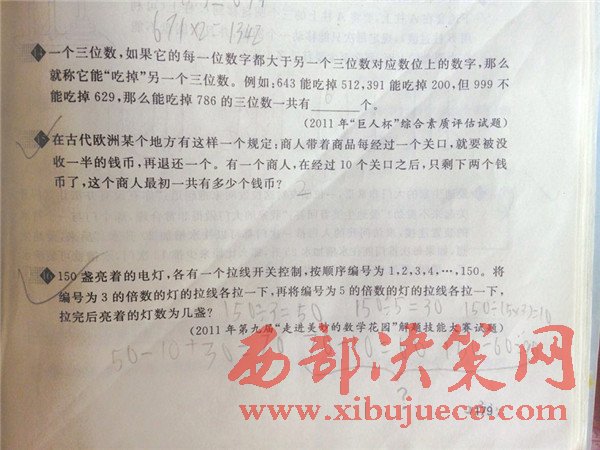 671×2=1342
一个三位数,如果它的每一位数字都大于另一个三位数对应数位上的数字,那么
就称它能“吃掉”另一个三位数。例如:643能吃掉512,391能吃掉200,但999不
能吃掉629,那么能吃掉786的三位数一共有______个。
(2011年“巨人杯”综合素质评估试题)
在古代欧洲某个地方有这样一个规定;商人带着商品每经过一个关口,就要被没
收一半的钱币,再退还一个。有一个商人,在经过10个关口之后,只剩下两个钱
币了,这个商人最初一共有多少个钱币?
2
16
150盏亮着的电灯,各有一个拉线开关控制,按顺序编号为1,2,3,4,…,150。将
编号为3的倍数的灯的拉线各拉一下,再将编号为5的倍数的灯的拉线各拉一下,
拉完后亮着的灯数为几盏?
150÷3=50 150÷5=30 150÷(5×3)=10
(2011年第九届“走进美妙的数学花园”解题技能大赛试题)
50-10+30
西部决策网
www.xibujuece.com
179